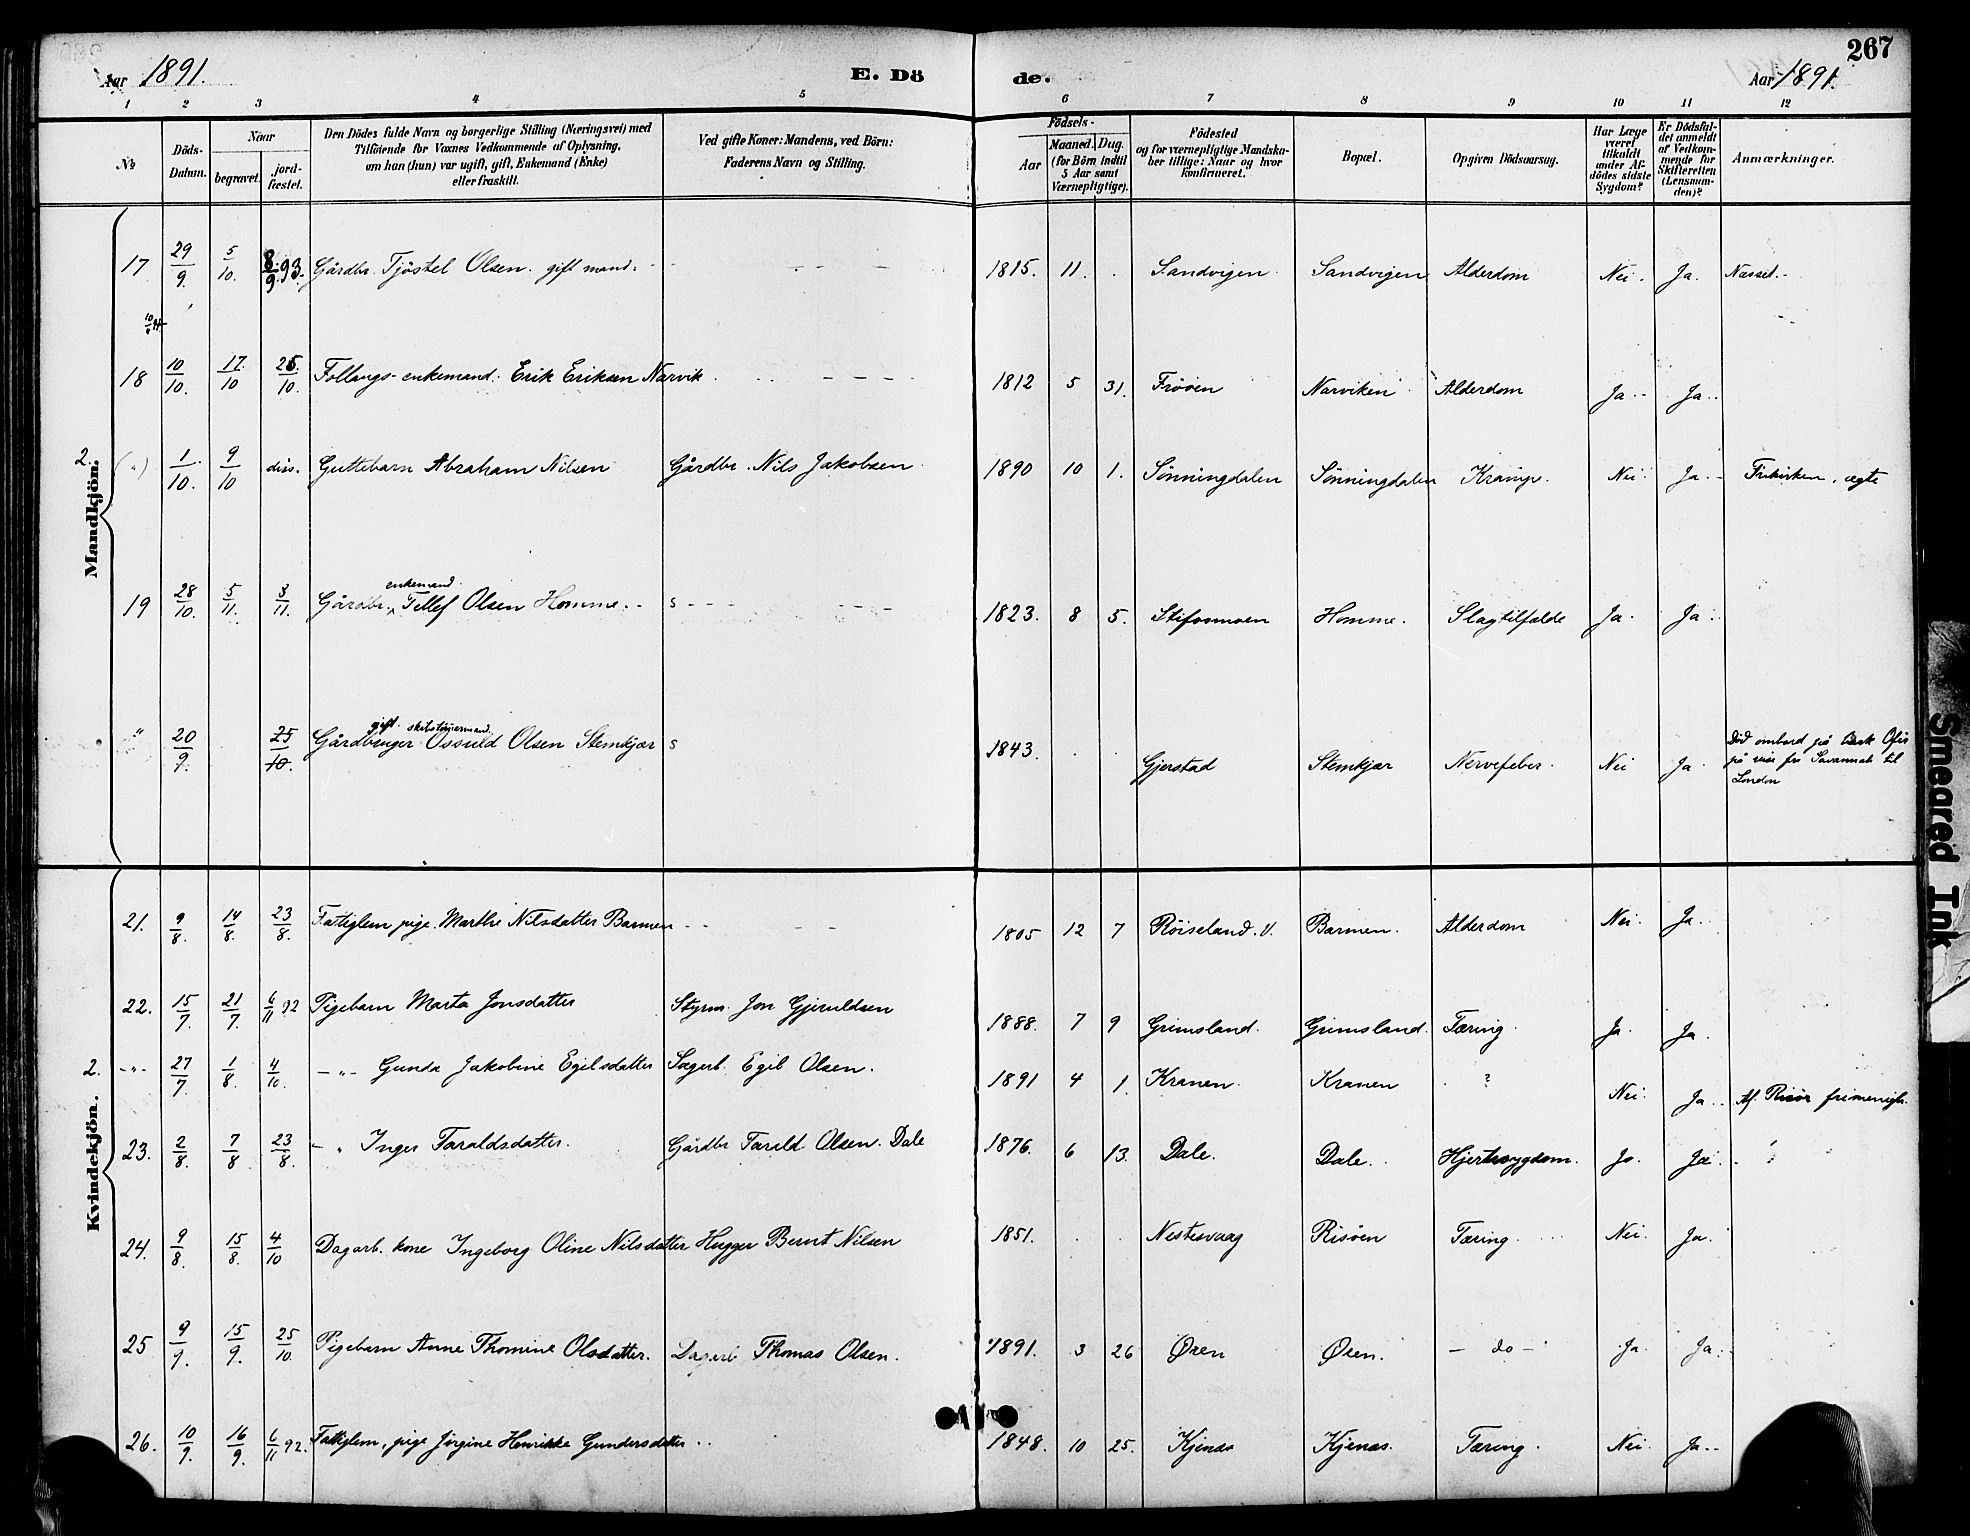 267
Aar 1891.
E. Dö
de.
Aar 1891.
1 2 3 4 5 6 7 8 9 10 11 12
No
Döds-
Datum.
Naar
begravet.
jord-
fæstet.
Den Dödes fulde Navn og borgerlige Stilling (Næringsvei) med
Tilföiende for Voxnes Vedkommende af Oplysning,
om han (hun) var ugift, gift, Enkemand (Enke)
eller fraskilt.
Ved gifte Koner: Mandens, ved Börn:
Faderens Navn og Stilling.
Födsels-
Aar
Maaned. Dag.
(for Börn indtil
5 Aar samt
Værnepligtige).
Födested
og for værnepligtige Mandska-
ber tillige: Naar og hvor
konfirmeret.
Bopæl.
Opgiven Dödsaarsag.
Har Læge
været
tilkaldt
under Af-
dödes sidste
Sygdom?
Er Dödsfal-
det anmeldt
af Vedkom-
mende for
Skifteretten
(Lensman-
den)?
Anmærkninger.
Mandkjön.
17 29/9. 5/10. 8/9 93. Gårdbr. Tjöstel Olsen. gift mand. 1815. 11. Sandvigen Sandvigen Alderdom Nei. Ja. Næsset.
18 10/10. 17/10 25/10. Follaugs-enkemand: Erik Eriksen Narvik. 1812 5 31. Frööen Narviken Alderdom Ja. Ja.
2. (") 1/10. 9/10 diss. Guttebarn Abraham Nilsen Gårdbr. Nils Jakobsen 1890 10 1. Sönningdalen Sönningdalen Krampe. Nei. Ja. Frikirken, ægte
enkemand
19 28/10. 5/11. 3/11. Gårdbr. Tellef Olsen Homme. 1823. 8 5. Stifosmoen Homme. Slagtilfælde Ja. Ja.
gift. skibstömermand
" 20/9. 25/10. Gårdbruger Ossuld Olsen Stemkjær 1843. Gjerstad Stemkjær Nervefeber. Nei Ja
Död ombord på Bark Ofir
på reise fra Savannah til
London
Kvindekjön.
21. 9/8. 14/8. 23/8. Fattiglem, pige. Marthe Nilsdatter Barmen 1805 12 7 Röiseland. V. Barmen. Alderdom Nei. Ja.
22. 15/7. 21/7. 6/11 92 Pigebarn Marta Jonsdatter Styrm. Jon Gjeruldsen 1888. 7 9 Grimsland. Grimsland. Tæring. Ja. Ja.
2. -"- 27/7. 1/8. 4/10. -"- Gunda Jakobine Egilsdatter Sagarb. Egil Olsen. 1891 4 1. Kranen. Kranen ? Nei. Ja. Af Risör frimenigh.
23. 2/8. 7/8 23/8. -" Inger Taraldsdatter. Gårdbr Tarald Olsen. Dale 1876. 6 13. Dale. Dale. Hjertesygdom. Ja. Ja.
24. 9/8. 15/8. 4/10 Dagarb. kone Ingeborg Oline Nilsdatter Hugger Bernt Nilsen 1851. Nestesvaag Risöen Tæring. Nei. Ja.
25 9/9. 15/9. 25/10. Pigebarn Anne Thomine Olsdatter. Dagarb Thomas Olsen. 1891. 3 26 Øxen Øxen. - do - Ja. Ja.
26. 10/9. 16/9. 6/11 92. Fattiglem, pige Jörgine Henrikke Gundersdatter 1848. 10 25. Kjenas Kjenas. Tæring. Nei. Ja.
Smeared Ink